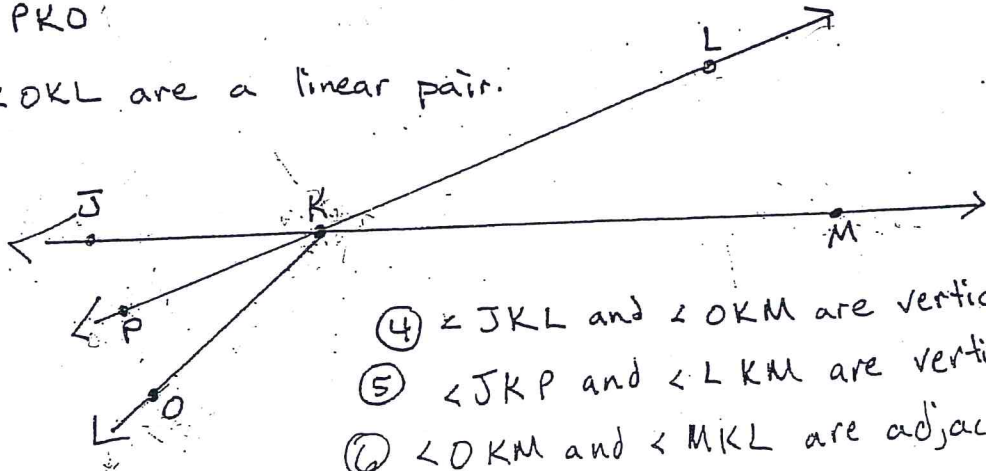 PKO
∠OKL are a linear pair.
L
J
K
M
P
O
④ ∠JKL and ∠OKM are vertic
⑤ ∠JKP and ∠LKM are verti
⑥ ∠OKM and ∠MKL are adjac